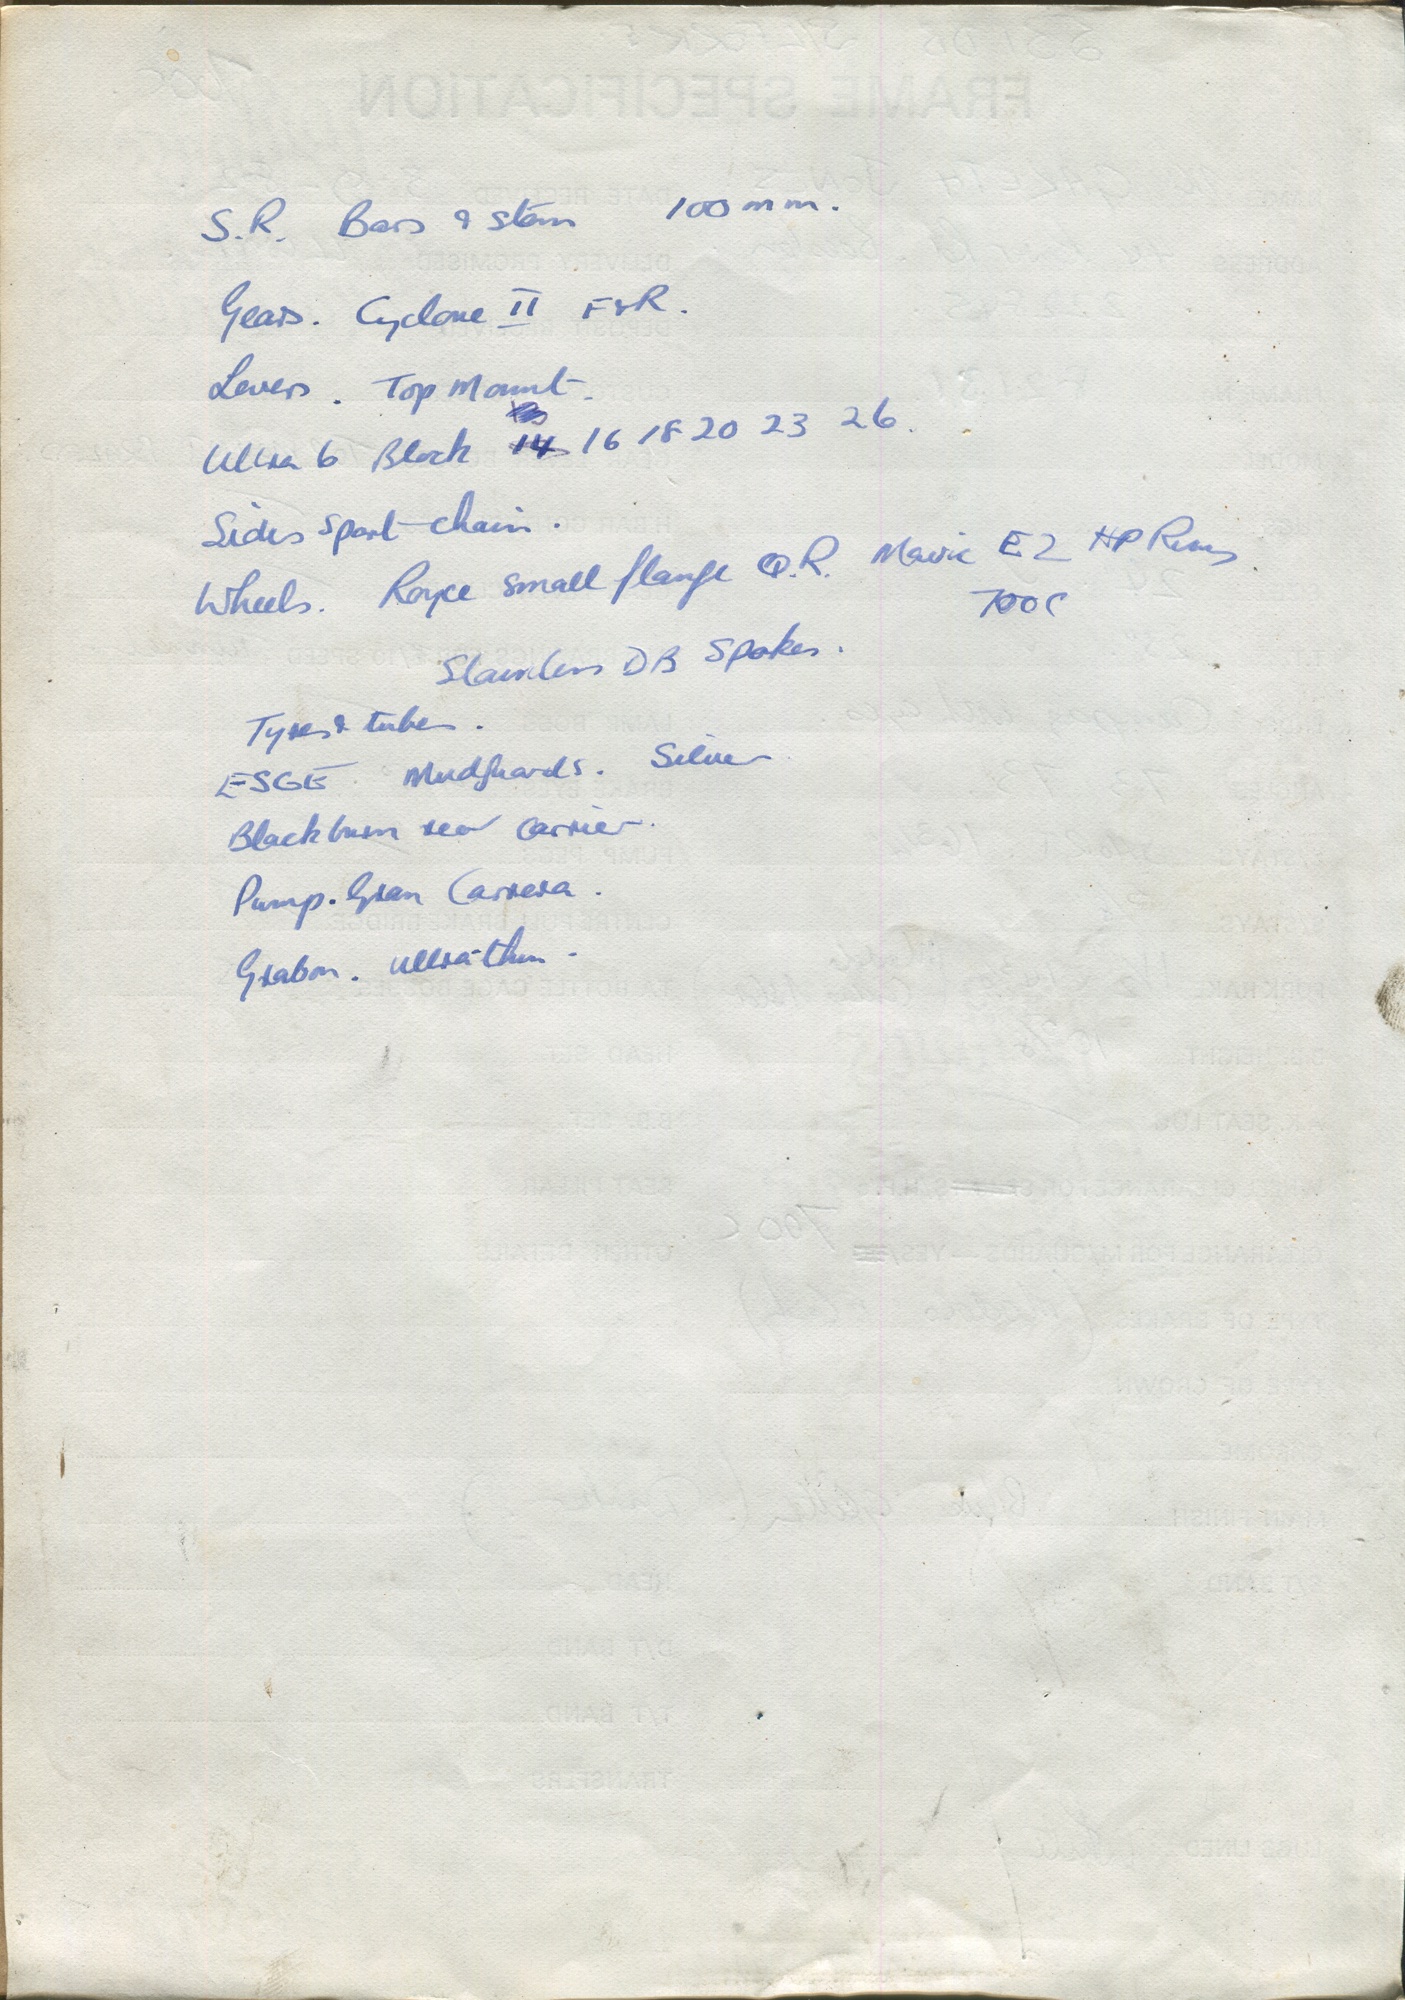 S.R. Bars & stem 100mm.
Gears. Cyclone II F&R.
Levers. Top Mount.
Ultra 6 Block 14 16 18 20 23 26.
Sides sport chain.
Wheels. Royce small flange Q.R. Mavic E2 HP Rims
700C
Stainless DB Spokes.
Tyres & tubes.
ESGE Mudguards. Silver
Blackburn rear carrier.
Pump. Gran Carrera.
Grabon. Ultra-thin.